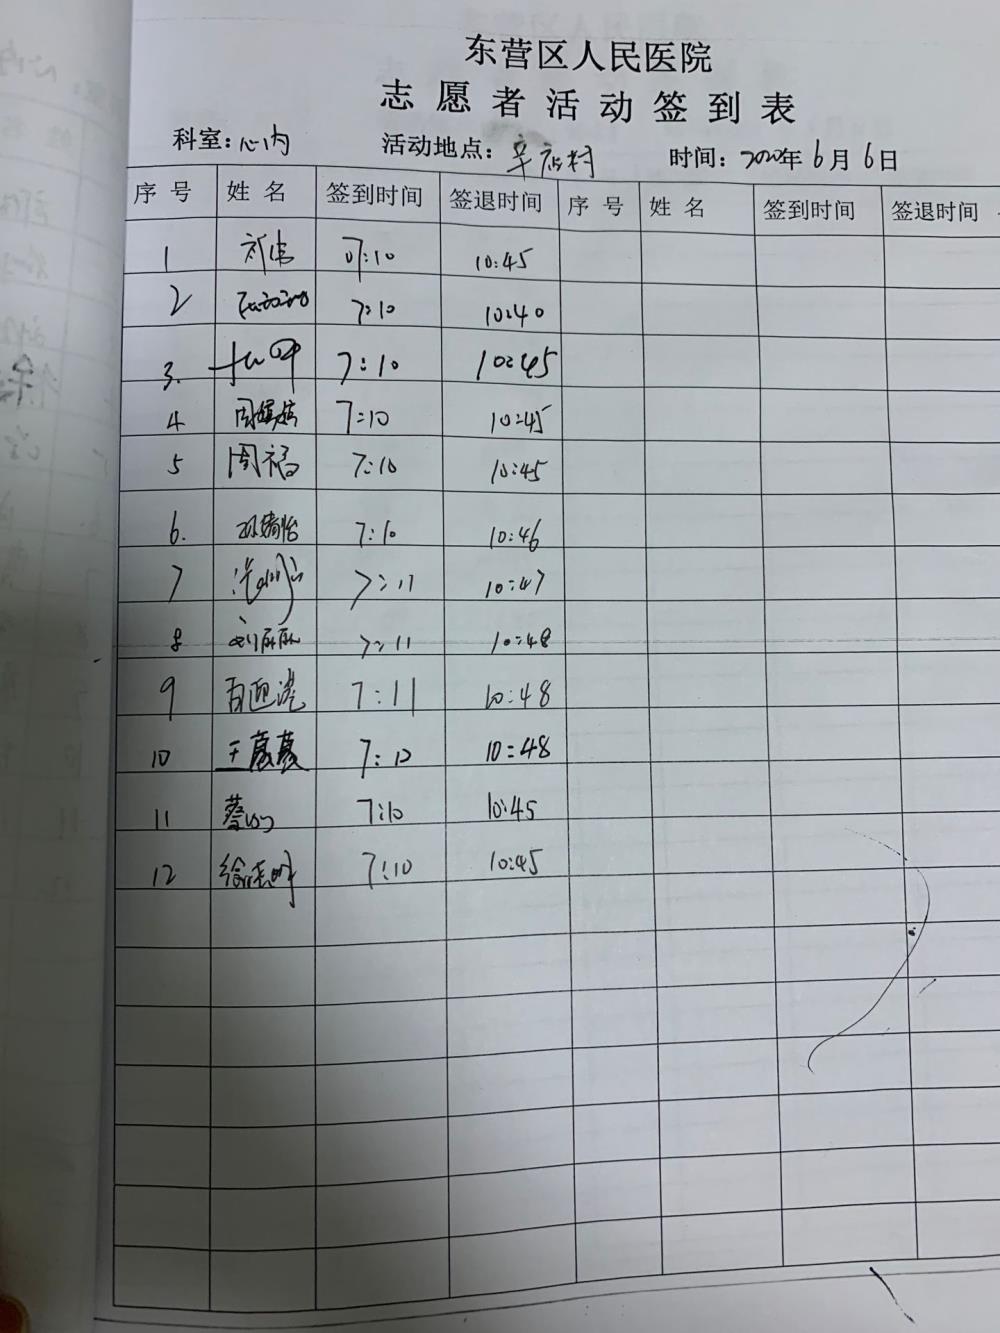 东营区人民医院
志愿者活动签到表
科室：心内 活动地点：辛店村 时间：2020年6月6日
序号 姓名 签到时间 签退时间 序号 姓名 签到时间 签退时间
1 07:10 10:45
2 7:10 10:40
3. 7:10 10:45
4 7:10 10:45
5 周福 7:10 10:45
6. 7:10 10:46
7 7:11 10:47
8 7:11 10:48
9 7:11 10:48
10 王蕞蕞 7:12 10:48
11 7:10 10:45
12 徐志明 7:10 10:45